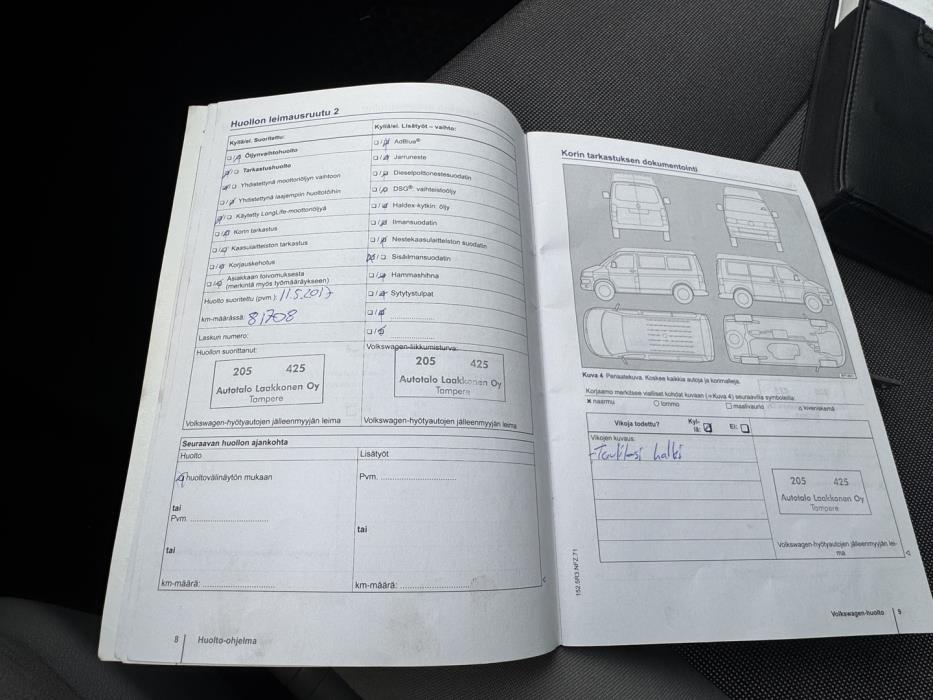 Huollon leimausruutu 2
Kyllä/ei. Suoritettu:
Öljynvaihtohuolto
Tarkastushuolto
Yhdistettynä moottoriöljyn vaihtoon
Yhdistettynä laajempiin huoltotöihin
Käytetty LongLife-moottoriöljyä
Korin tarkastus
Kaasulaitteiston tarkastus
Korjauskehotus
Asiakkaan toivomuksesta
(merkintä myös työmääräykseen)
Huolto suoritettu (pvm.): 11.5.2017
km-määrässä: 81708
Laskun numero:
Huollon suorittanut:
205 425
Autotalo Laakkonen Oy
Tampere
Volkswagen-hyötyautojen jälleenmyyjän leima
Kyllä/ei. Lisätyöt – vaihto:
AdBlue®
Jarruneste
Dieselpolttonestesuodatin
DSG®: vaihteistoöljy
Haldex-kytkin: öljy
Ilmansuodatin
Nestekaasulaitteiston suodatin
Sisäilmansuodatin
Hammashihna
Sytytystulpat
Volkswagen-liikkumisturva:
205 425
Autotalo Laakkonen Oy
Tampere
Volkswagen-hyötyautojen jälleenmyyjän leima
Seuraavan huollon ajankohta
Huolto
huoltovälinäytön mukaan
tai
Pvm.
tai
km-määrä:
Lisätyöt
Pvm.
tai
km-määrä:
8 Huolto-ohjelma
Korin tarkastuksen dokumentointi
Kuva 4 Periaatekuva. Koskee kaikkia autoja ja korimalleja.
Korjaamo merkitsee vialliset kohdat kuvaan (⇒Kuva 4) seuraavilla symboleilla:
naarmu lommo maalivaurio kiveniskemä
Vikoja todettu? Kyl-
lä: Ei:
Vikojen kuvaus:
-Tuulilasi halki
205 425
Autotalo Laakkonen Oy
Tampere
Volkswagen-hyötyautojen jälleenmyyjän lei-
ma
152.5R3.NFZ.71
Volkswagen-huolto 9